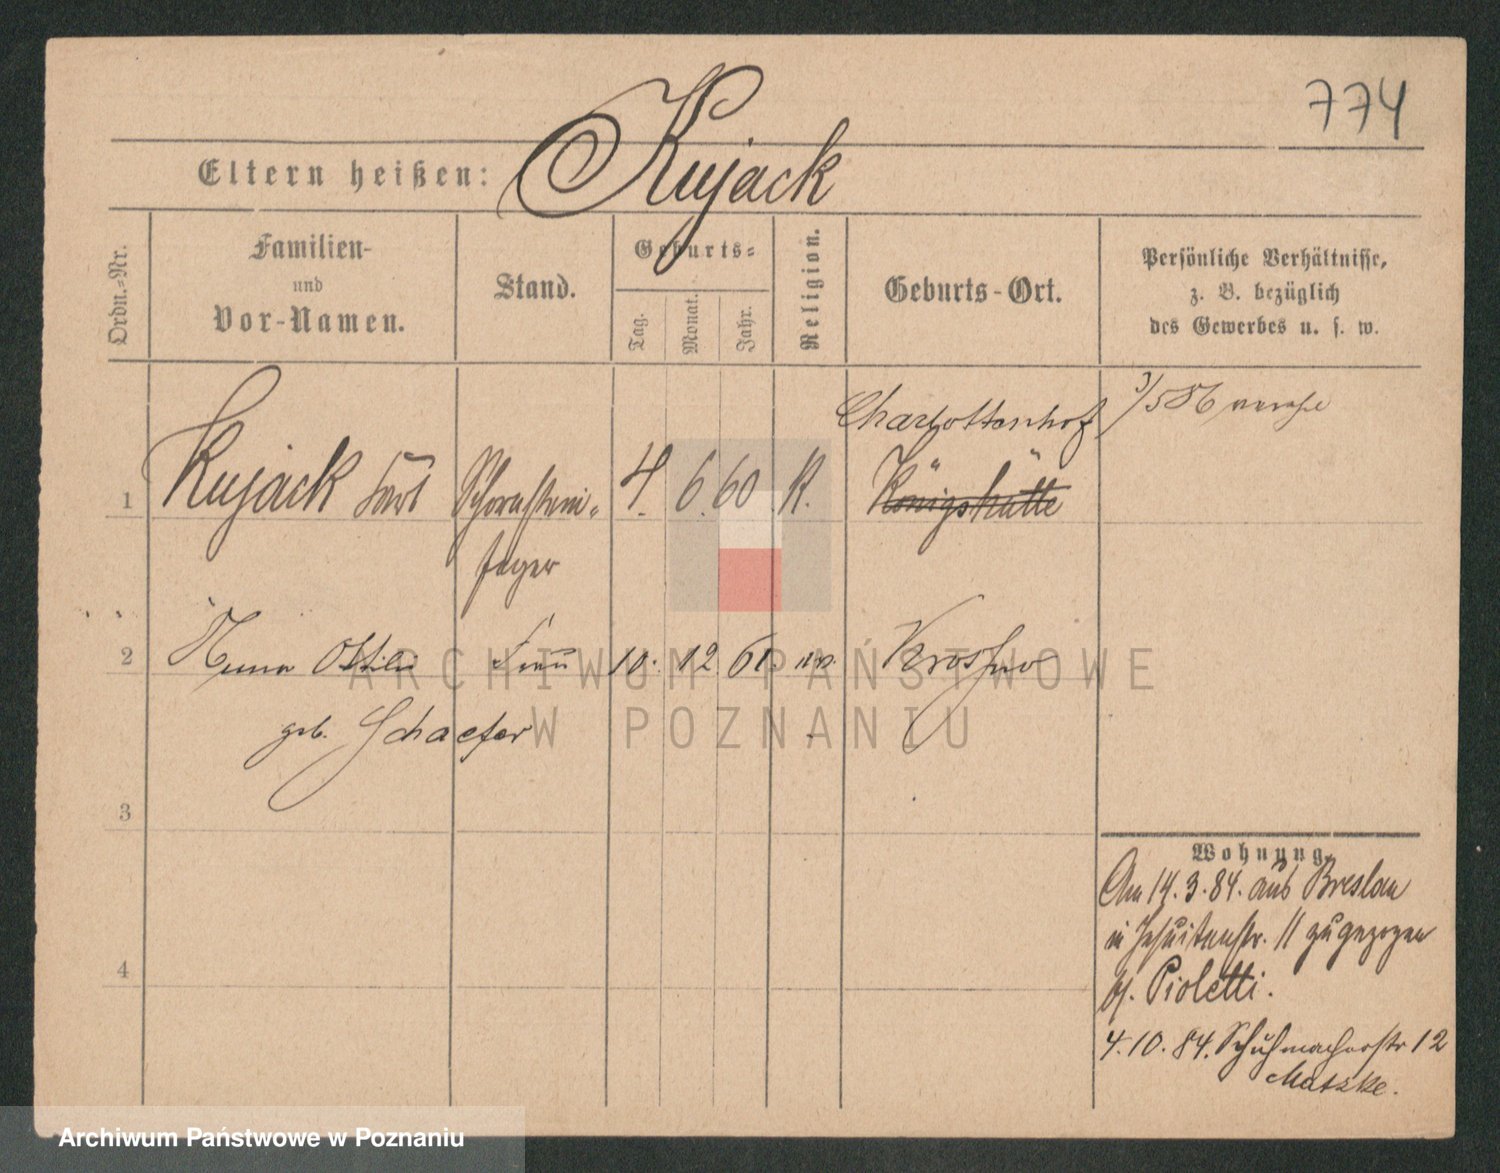 774
Eltern heißen: Kujack
Ordn.-Nr.
Familien-
und
Vor-Namen.
Stand.
Geburts-
Tag.
Monat.
Jahr.
Religion.
Geburts-Ort.
Persönliche Verhältnisse,
z. B. bezüglich
des Gewerbes u. s. w.
Charlottenhof
1 Kujack Carl Schornstein- 4. 6. 60 K. Königshütte
feger
2 Ottilie Frau 10. 12 61.
geb. Schaefer
3
4
Wohnung.
Am 14.3.84. aus Breslau
in Jesuitenstr. 11 zugezogen
bei Pioletti.
4.10.84. Schuhmacherstr 12
Matzke.
ARCHIWUM PAŃSTWOWE
W POZNANIU
Archiwum Państwowe w Poznaniu